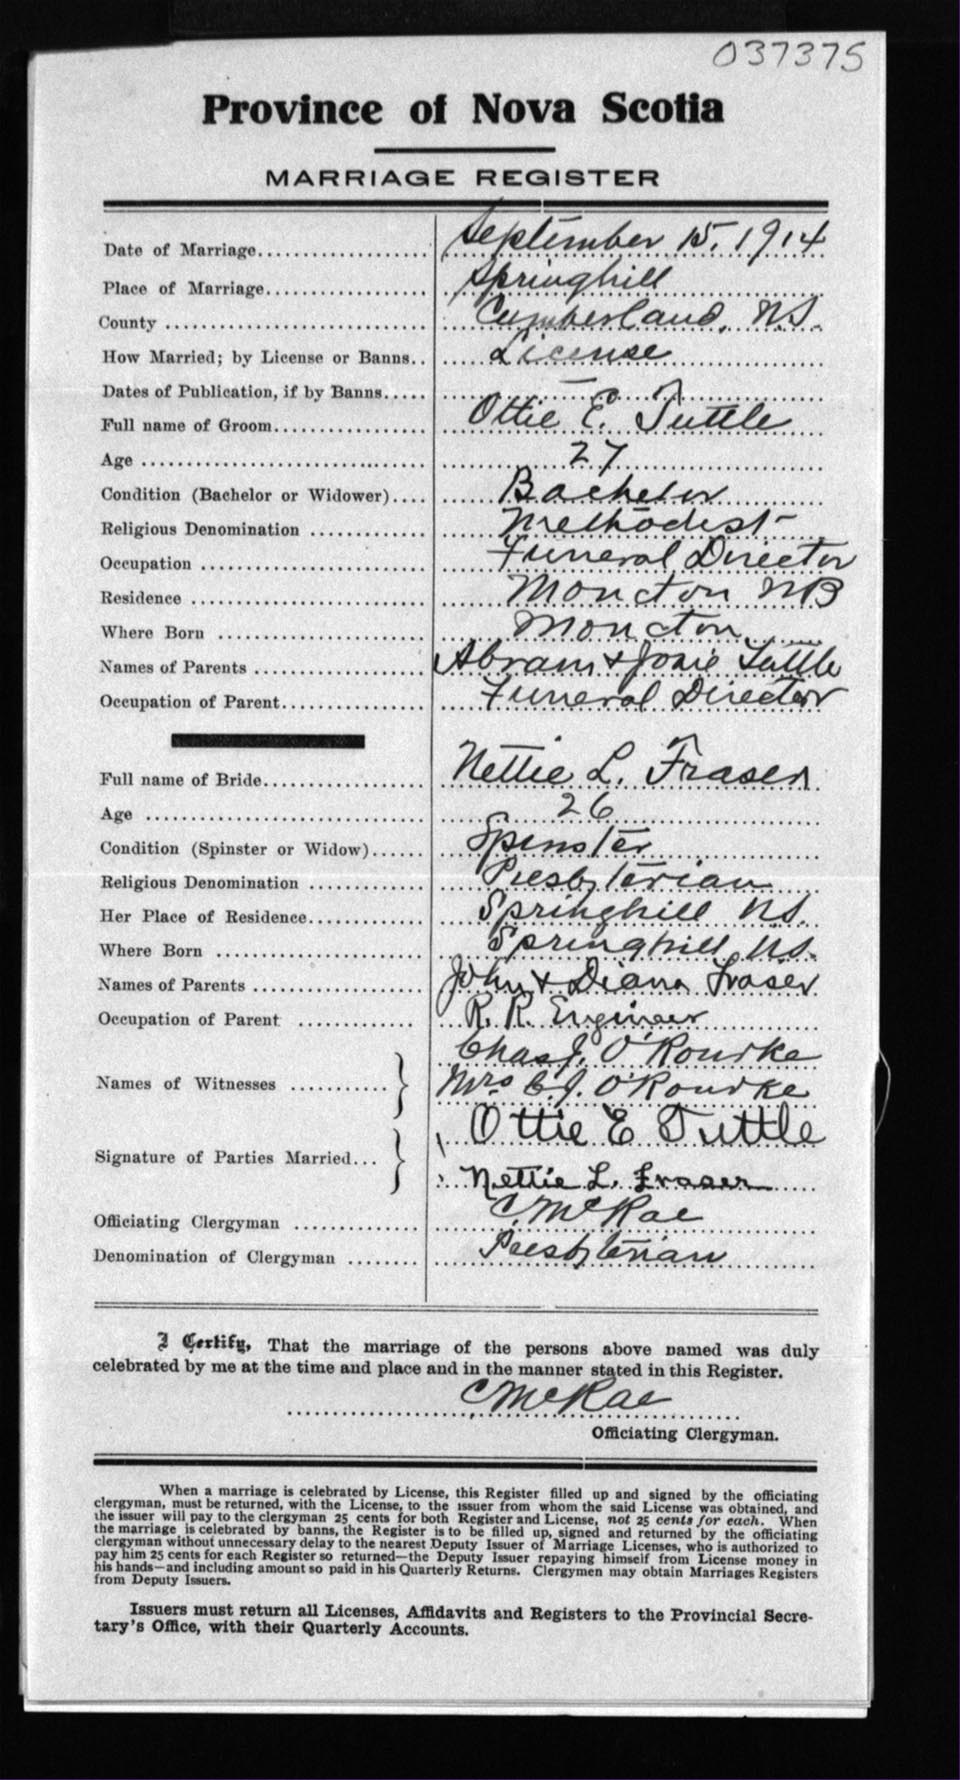 037375
Province of Nova Scotia
MARRIAGE REGISTER
Date of Marriage.................... September 15, 1914
Place of Marriage................... Springhill
County .............................. Cumberland, N.S.
How Married; by License or Banns.. License
Dates of Publication, if by Banns..... —
Full name of Groom.................. Ottie E. Tuttle
Age ................................. 27
Condition (Bachelor or Widower).... Bachelor
Religious Denomination ............. Methodist
Occupation .......................... Funeral Director
Residence ........................... Moncton NB
Where Born ........................ Moncton
Names of Parents .................... Abram & Josie Tuttle
Occupation of Parent................. Funeral Director
Full name of Bride................... Nettie L. Fraser
Age ................................. 26
Condition (Spinster or Widow)...... Spinster
Religious Denomination ............. Presbyterian
Her Place of Residence............. Springhill N.S.
Where Born ........................ Springhill N.S.
Names of Parents .................... John & Diana Fraser
Occupation of Parent ............. R. R. Engineer
Chas J. O'Rourke
Names of Witnesses ........... } Mrs C.J. O'Rourke
Ottie E Tuttle
Signature of Parties Married... } Nettie L. Fraser
Officiating Clergyman .............. C. McRae
Denomination of Clergyman ........ Presbyterian
I Certify, That the marriage of the persons above named was duly
celebrated by me at the time and place and in the manner stated in this Register.
C McRae
Officiating Clergyman.
When a marriage is celebrated by License, this Register filled up and signed by the officiating
clergyman, must be returned, with the License, to the issuer from whom the said License was obtained, and
the issuer will pay to the clergyman 25 cents for both Register and License, not 25 cents for each. When
the marriage is celebrated by banns, the Register is to be filled up, signed and returned by the officiating
clergyman without unnecessary delay to the nearest Deputy Issuer of Marriage Licenses, who is authorized to
pay him 25 cents for each Register so returned—the Deputy Issuer repaying himself from License money in
his hands—and including amount so paid in his Quarterly Returns. Clergymen may obtain Marriages Registers
from Deputy Issuers.
Issuers must return all Licenses, Affidavits and Registers to the Provincial Secre-
tary's Office, with their Quarterly Accounts.